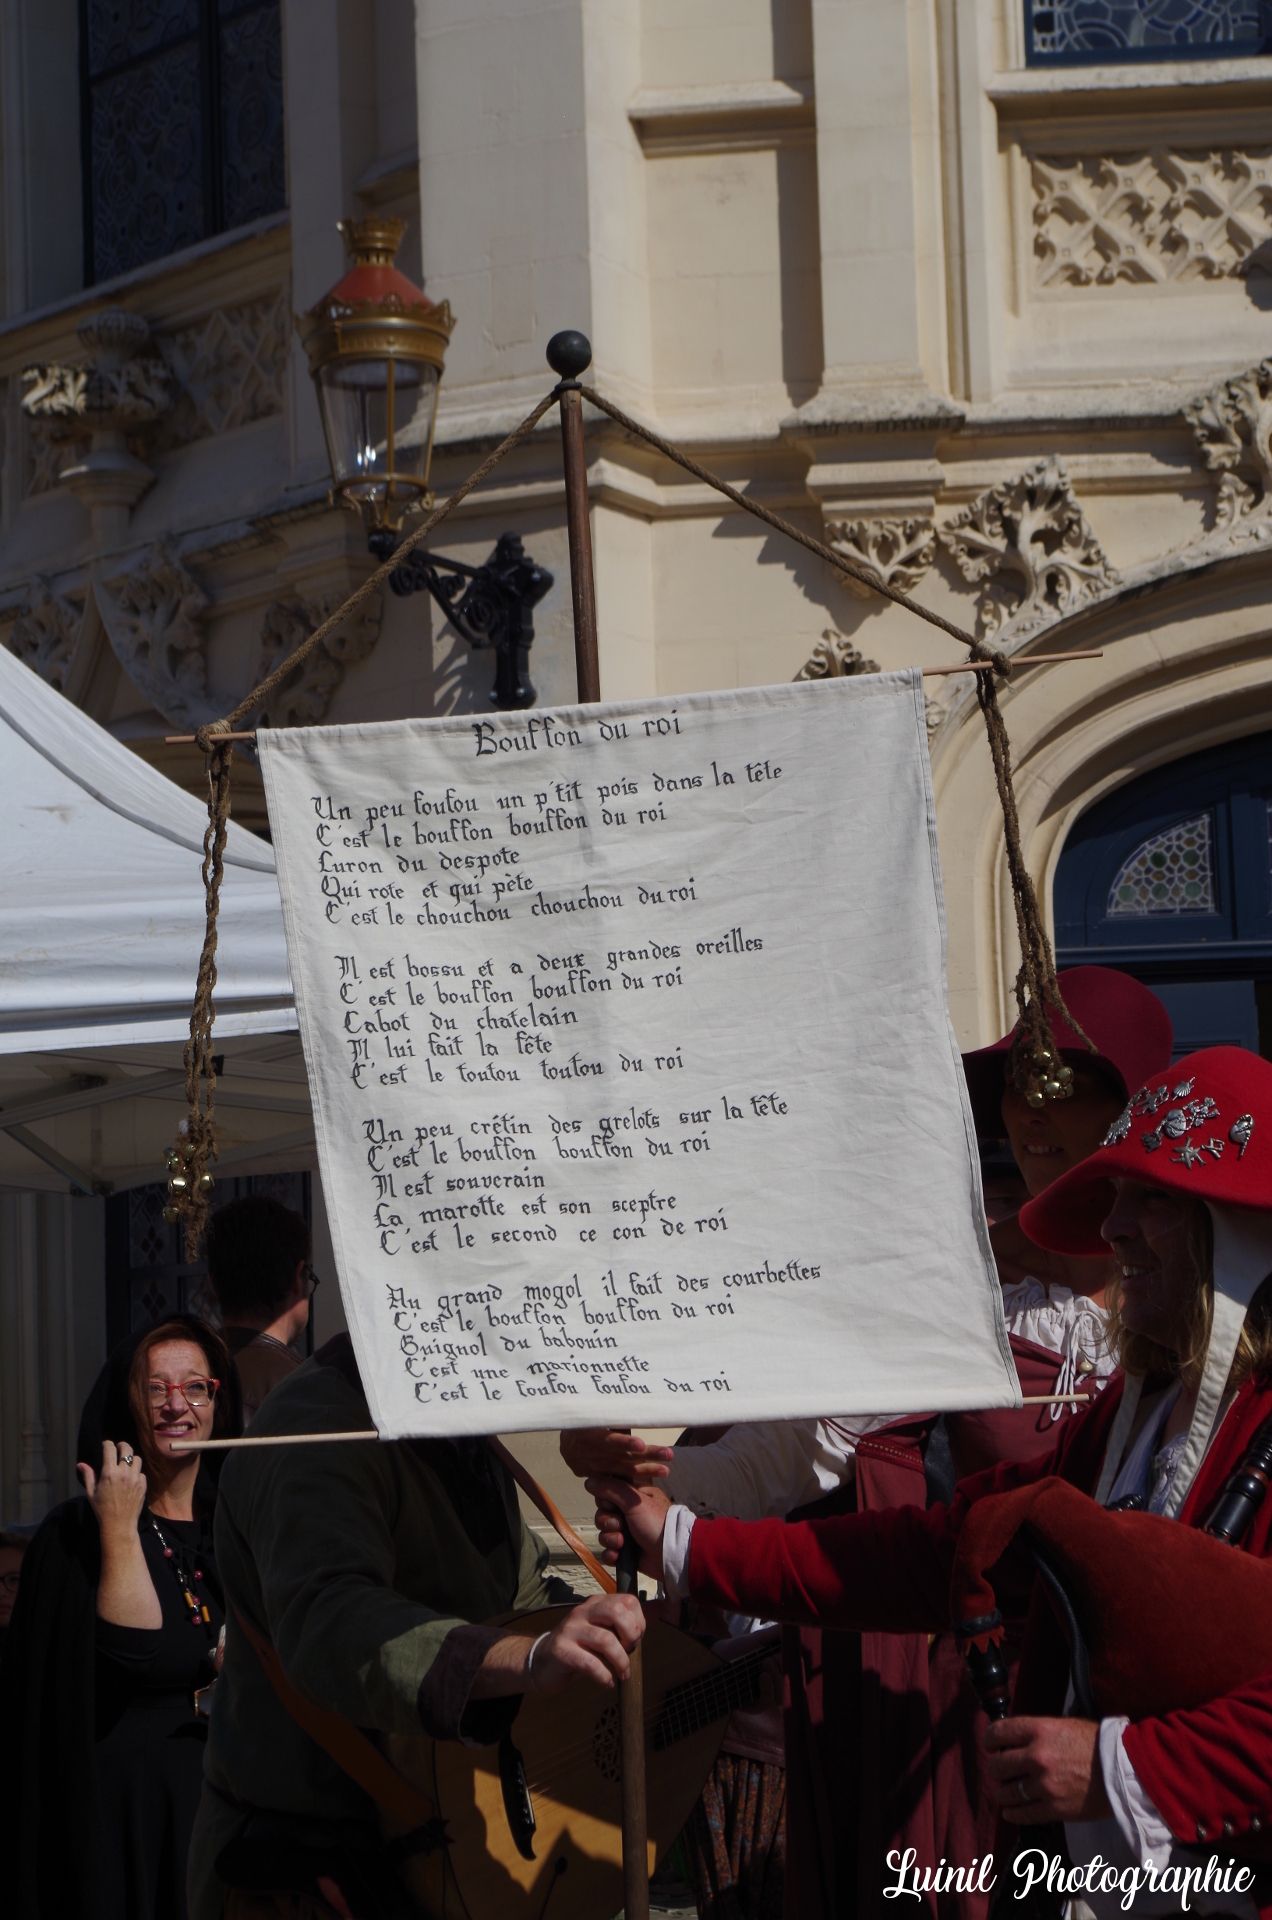 Bouffon du roi
Un peu foufou un p'tit pois dans la tête
C'est le bouffon bouffon du roi
Luron du despote
Qui rote et qui pète
C'est le chouchou chouchou du roi
Il est bossu et a deux grandes oreilles
C'est le bouffon bouffon du roi
Cabot du chatelain
Il lui fait la fête
C'est le toutou toutou du roi
Un peu crétin des grelots sur la tête
C'est le bouffon bouffon du roi
Il est souverain
La marotte est son sceptre
C'est le second ce con de roi
Au grand mogol il fait des courbettes
C'est le bouffon bouffon du roi
Guignol du babouin
C'est une marionnette
C'est le foufou foufou du roi
Luinil Photographie